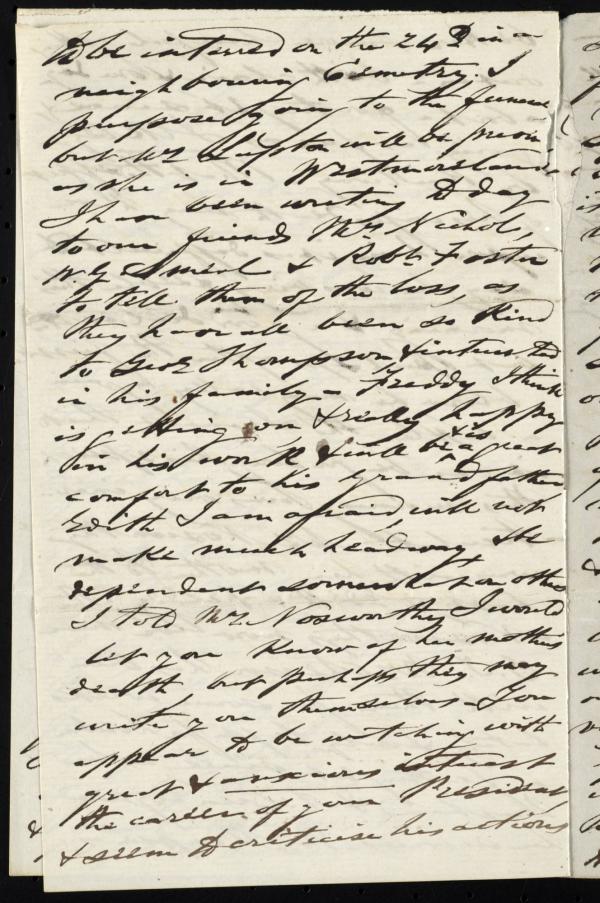 to be interred on the 24th in a
neighbouring Cemetry. I
purpose going to the funeral
but Mrs Lupton will be
as she is in Westmoreland.
I have been writing to day
to our friends Mrs Nichol,
W. & Robt. Foster
to tell them of the loss, as
they have all been so kind
to Geo. Thompson & interested
in his family - Freddy I think
is getting on & really happy
in his work & will be & is a great
comfort to his Grandfather
Edith I am afraid, will not
make much headway, the
dependent somewhat on others
I told Mrs Nosworthy I would
let you know of her mother's
death, but perhaps they may
write you themselves - You
appear to be watching with
great & anxious interest
the career of your President,
& seem to criticise his actions